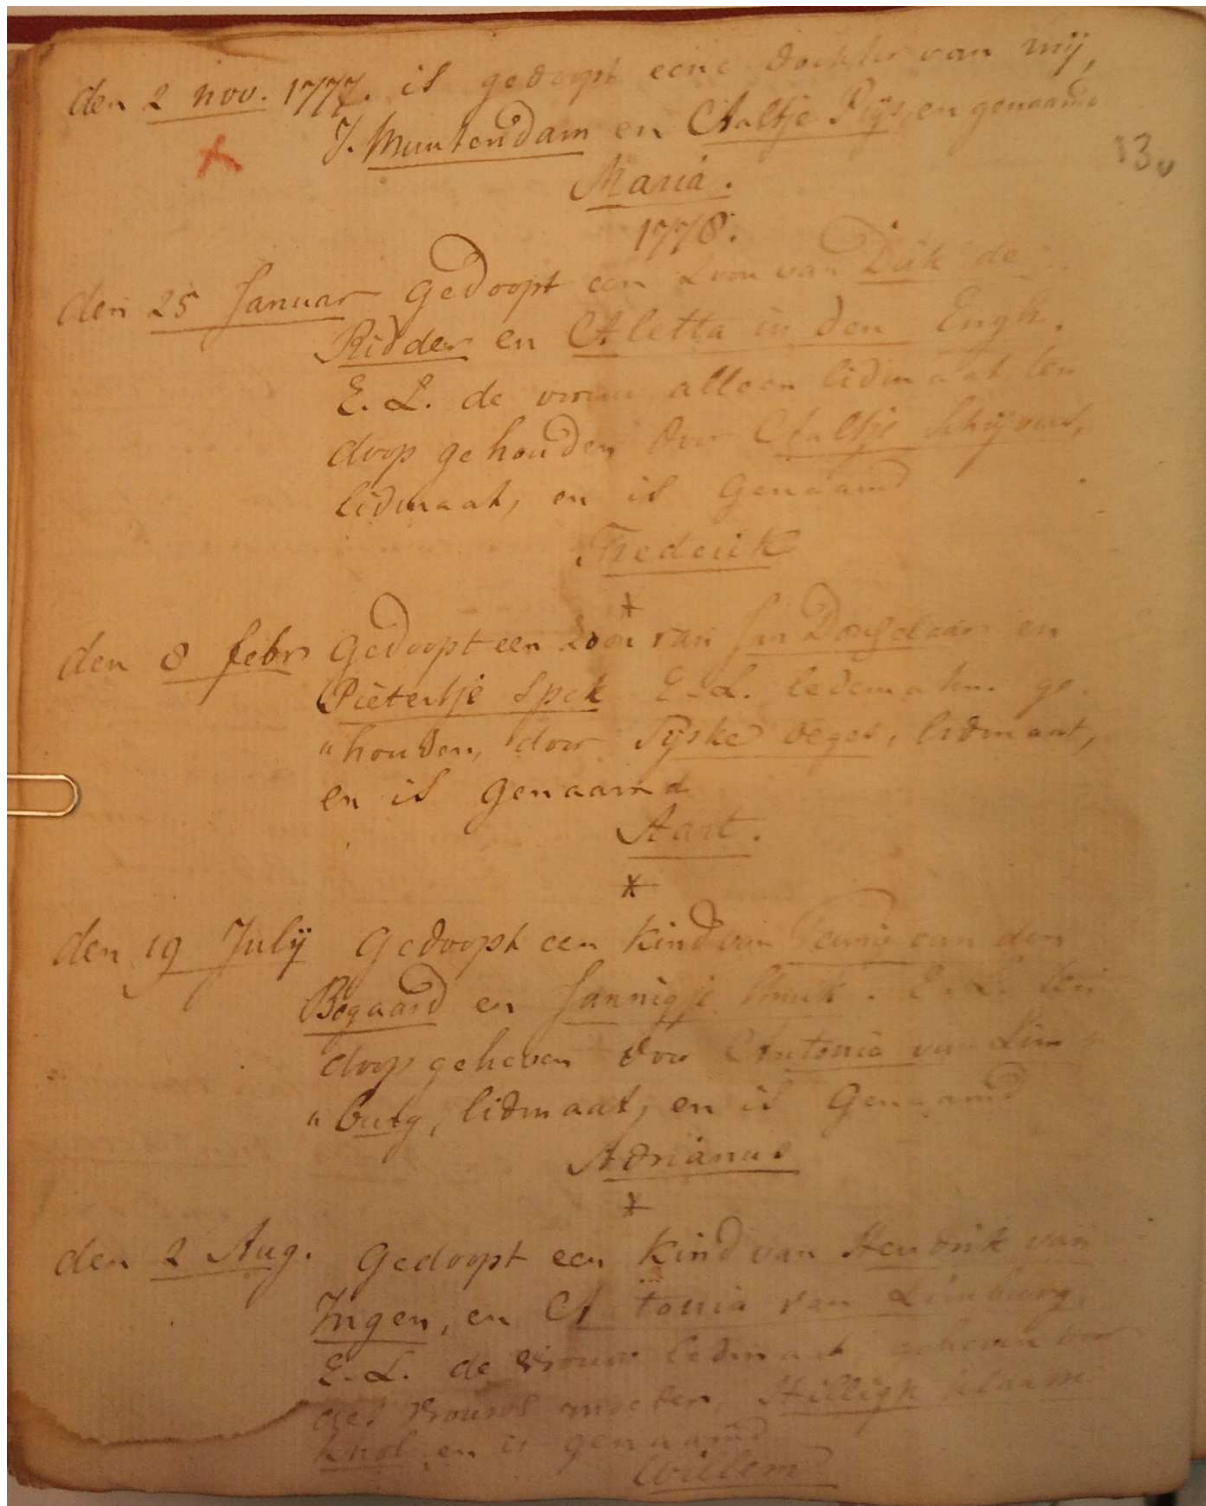 den 2 nov. 1777. is gedoopt eene dochter van mij,
J. Muntendam en Aaltje Pijs, en genaamd
13v
Maria.
1778.
den 25 Januar Gedoopt een Zoon van Dirk de
Ridder en Aletta in den Engh.
E. L. de vrouw alleen lidmaat, ten
doop gehouden door Aaltje
lidmaat, en is Genaamd
Frederik
den 8 febr Gedoopt een Zoon van Jan Dongelaar en
Pietertje Spek E. L. ledematen. ge-
"houden, door Sijske Veges, lidmaat,
en is Genaamd
Aart.
den 19 Julij Gedoopt een Kind van Teunis van den
Bogaard en Jannigje E. L. ten
doop geheven door Antonia van Lim
"burg, lidmaat, en is Genaamd
Adrianus
den 2 Aug. Gedoopt een Kind van Hendrik van
Ingen, en Antonia van Limburg,
E. L. de vrouw ledmaat, geheven door
des vrouws moeder,
Knol en is genaamd
Willem